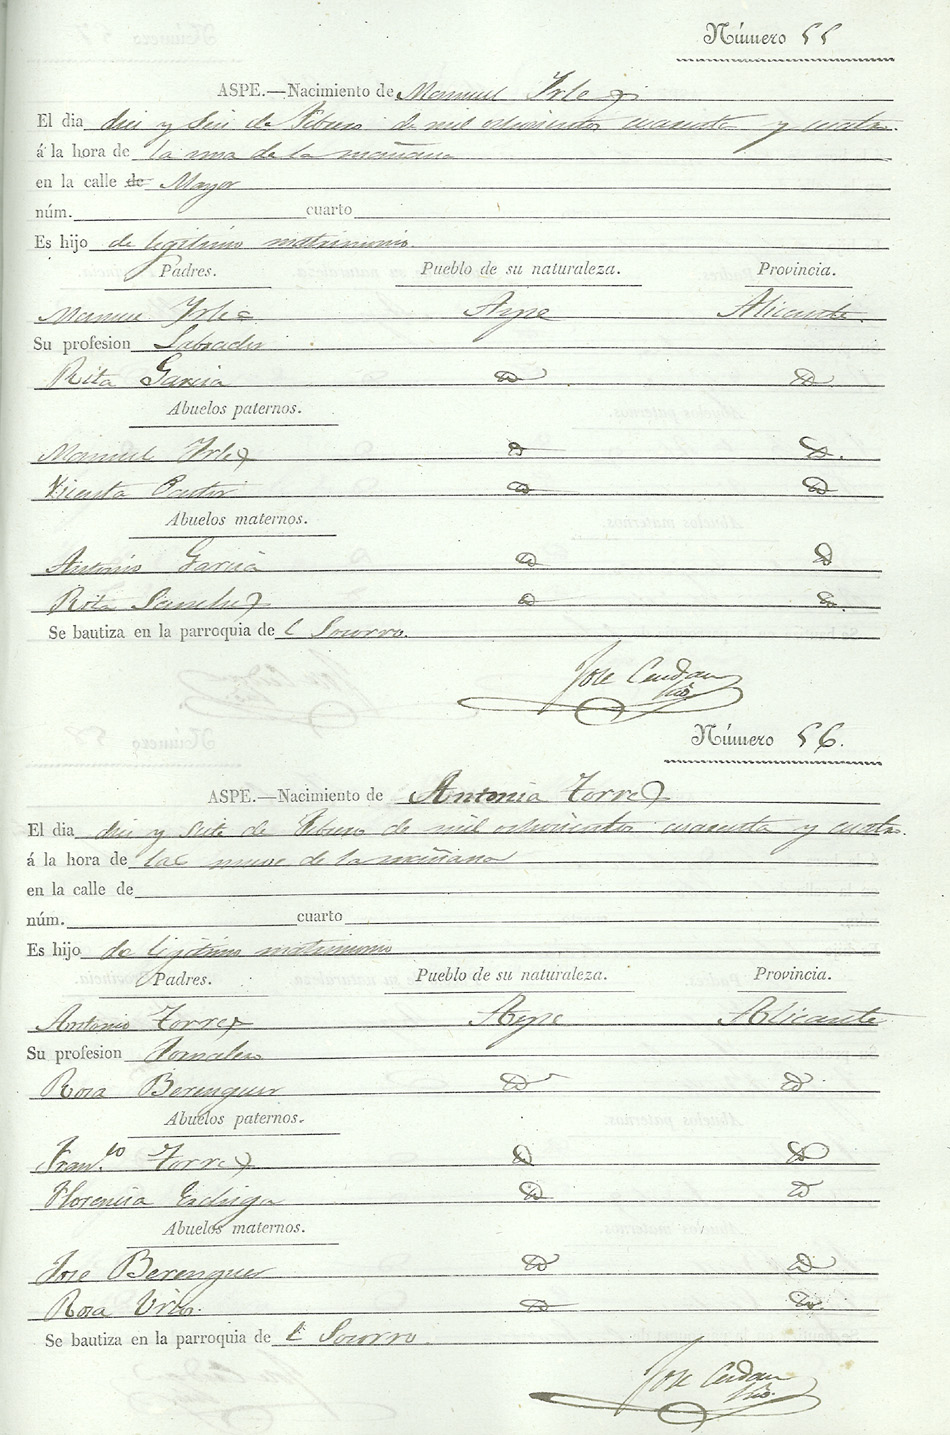 Número 55
ASPE.—Nacimiento de Manuel Irles
El dia diez y seis de Febrero de mil ochocientos cuarenta y cuatro.
á la hora de la una de la mañana
en la calle de Mayor
núm. cuarto
Es hijo de legitimo matrimonio
Padres. Pueblo de su naturaleza. Provincia.
Manuel Irles Aspe Alicante.
Su profesion Labrador
Rita Garcia D D
Abuelos paternos.
Manuel Irles D D.
Vicenta Pastor D D
Abuelos maternos.
Antonio Garcia D D
Rita Sanchez D D.
Se bautiza en la parroquia de l Socorro.
Jose Cerdan
Srio.
Número 56.
ASPE.—Nacimiento de Antonia Torres
El dia diez y siete de Febrero de mil ochocientos cuarenta y cuatro.
á la hora de las nueve de la mañana
en la calle de
núm. cuarto
Es hijo de legitimo matrimonio
Padres. Pueblo de su naturaleza. Provincia.
Antonio Torres Aspe Alicante
Su profesion Jornalero
Rosa Berenguer D D
Abuelos paternos.
Fran.co Torres D D
Florencia D D
Abuelos maternos.
Jose Berenguer D D
Rosa D D
Se bautiza en la parroquia de l Socorro.
Jose Cerdan
Srio.